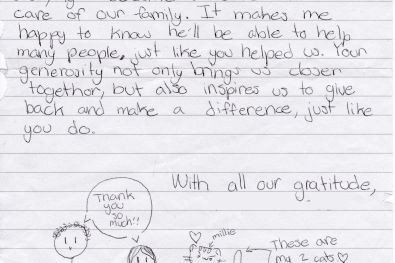 care of our family. It makes me
happy to know he'll be able to help
many people, just like you helped us. Your
generosity not only brings us closer
together, but also inspires us to give
back and make a difference, just like
you do.
With all our gratitude,
Thank
you
so
much!!
millie
These are
my 2 cats